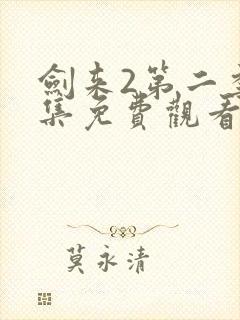 劍来2第二季
集免費觀看
莫永清